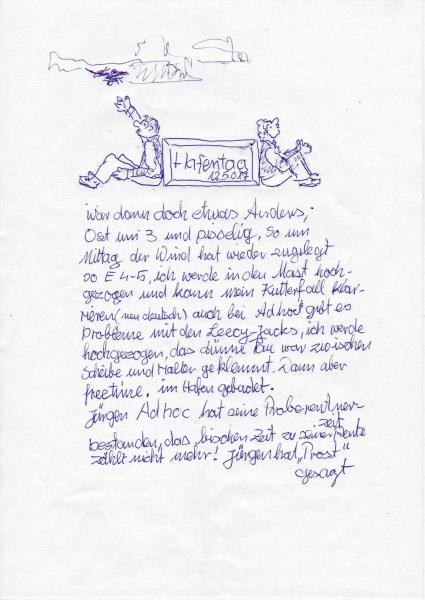 Hafentag
12.5.017
war dann doch etwas Anders,
Ost um 3 und pisselig, so um
Mittag der Wind hat wieder zugelegt
so E 4-5, ich werde in den Mast hoch-
gezogen und kann mein Kutterfall klar-
meren (neu deutsch) auch bei Adhoc gibt es
Probleme mit den Leecy-Jacks, ich werde
hochgezogen, das dünne war zwischen
Scheibe und Halten geklemmt. Dann aber
freetime, im Hafen gebadet.
Jürgen Adhoc hat seine Proberentner-
zeit
bestanden, das bischen Zeit zu seiner Rente
zählt nicht mehr! Jürgen hat „Prost"
gesagt